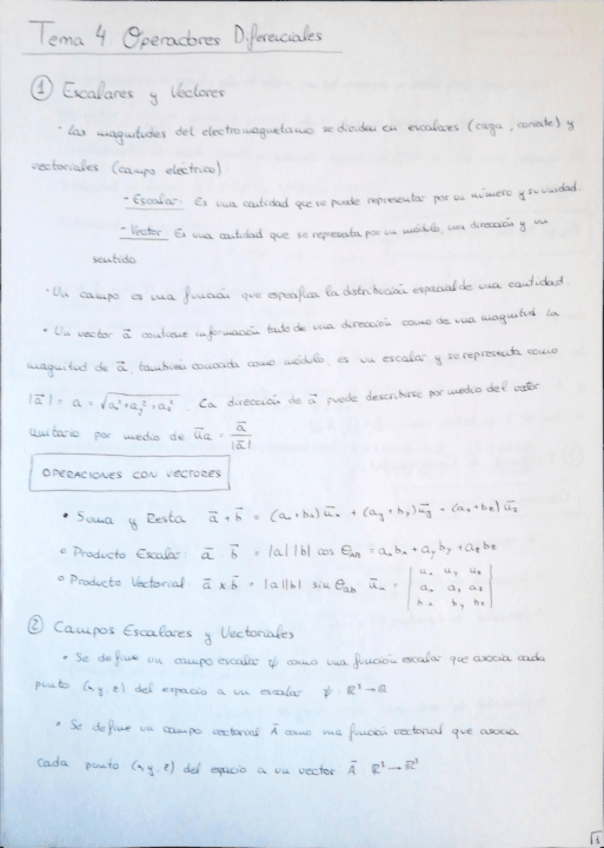 Tema 4 Operadores Diferenciales
① Escalares y Vectores
· Las magnitudes del electromagnetismo se dividen en escalares (carga, corriente) y
vectoriales (campo eléctrico)
- Escalar: Es una cantidad que se puede representar por un número y su unidad.
- Vector Es una cantidad que se representa por un módulo, una dirección y un
sentido
· Un campo es una función que especifica la distribución espacial de una cantidad.
• Un vector a⃗ contiene información tanto de una dirección como de una magnitud la
magnitud de a⃗, también conocida como módulo, es un escalar y se representa como
|a⃗| = a = √(aₓ²+a_y²+a_z²). La dirección de a⃗ puede describirse por medio del vector
unitario por medio de u⃗a = a⃗/|a⃗|
OPERACIONES CON VECTORES
• Suma y Resta a⃗ + b⃗ = (aₓ+bₓ)u⃗ₓ + (a_y+b_y)u⃗_y + (a_z+b_z)u⃗_z
• Producto Escalar: a⃗ · b⃗ = |a| |b| cos θ_ab = aₓbₓ + a_y b_y + a_z b_z
• Producto Vectorial a⃗ x b⃗ = |a||b| sin θ_ab u⃗ₙ = | uₓ u_y u_z |
| aₓ a_y a_z |
| bₓ b_y b_z |
② Campos Escalares y Vectoriales
• Se define un campo escalar ψ como una función escalar que asocia cada
punto (x, y, z) del espacio a un escalar ψ: ℝ³→ℝ
• Se define un campo vectorial A⃗ como una función vectorial que asocia
cada punto (x, y, z) del espacio a un vector A⃗ ℝ³→ℝ³
1